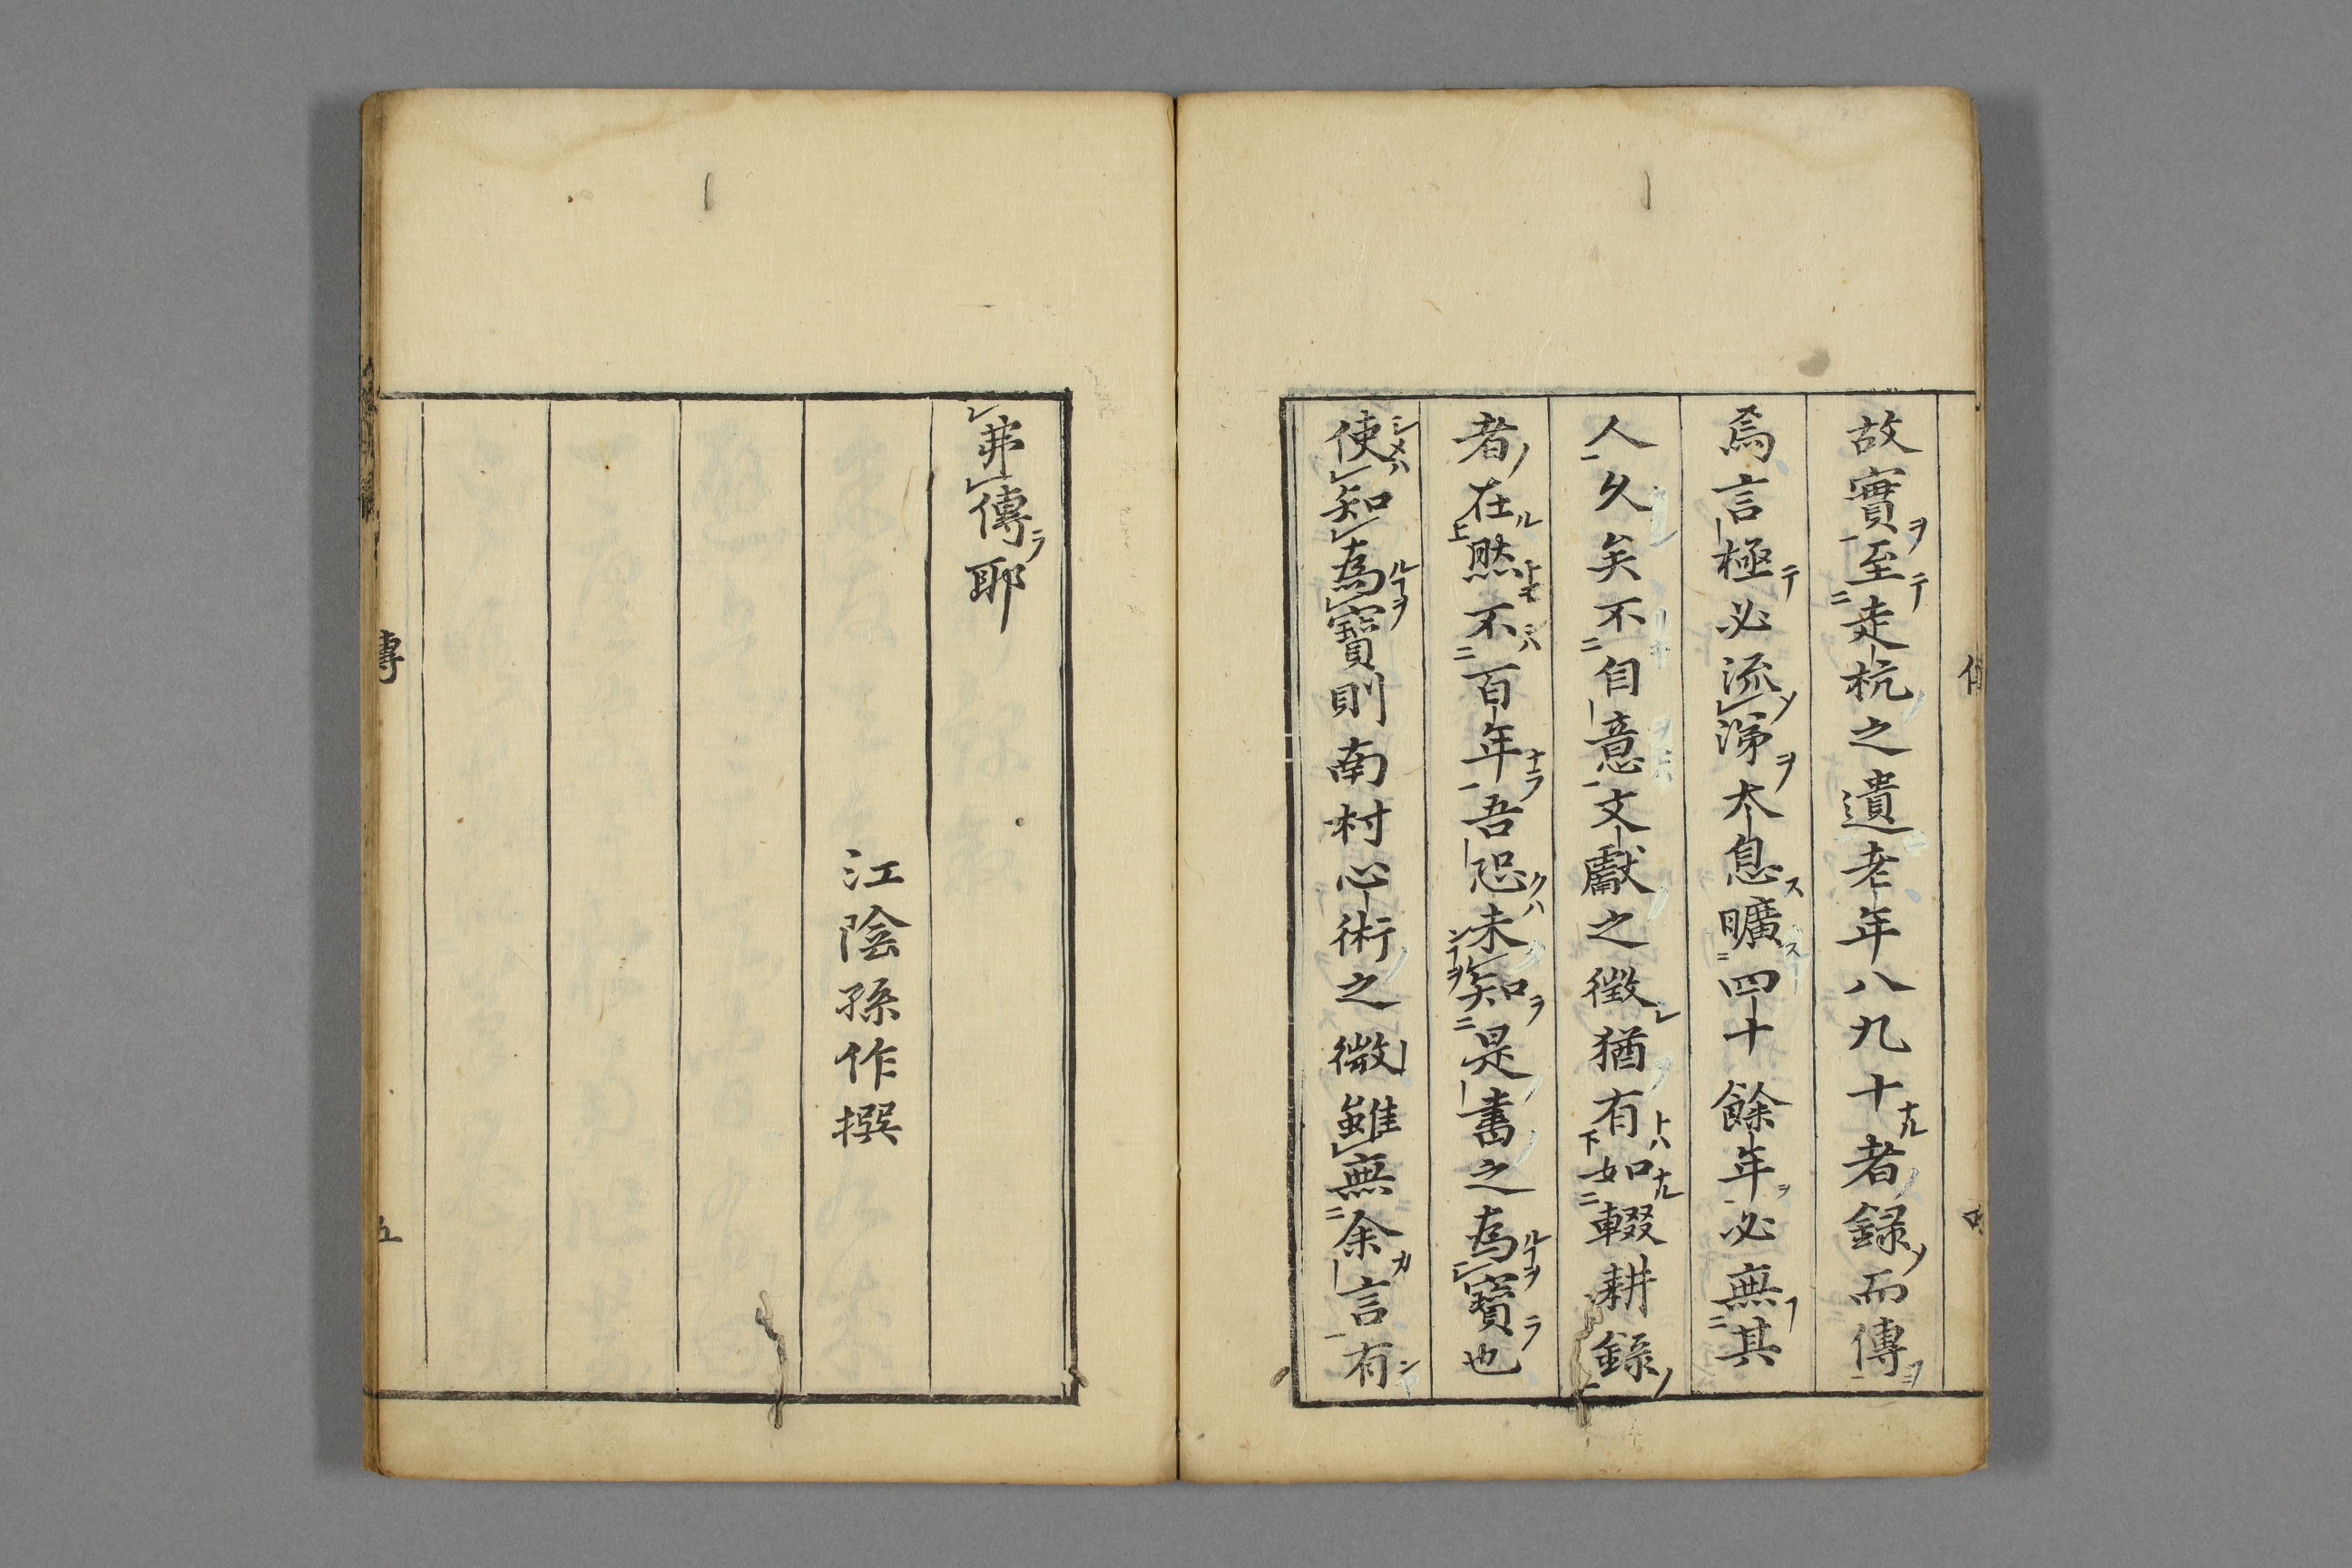 故實至走杭之遺老年八九十者録而傳
焉言極必流涕太息曠四十餘年必無其
人久矣不自意文獻之徴猶有如輟耕錄
者在然不百年吾恐未知是書之為寶也
使知為寳則南村心術之微雖無余言有
弗傳耶
江陰孫作撰
傳
五